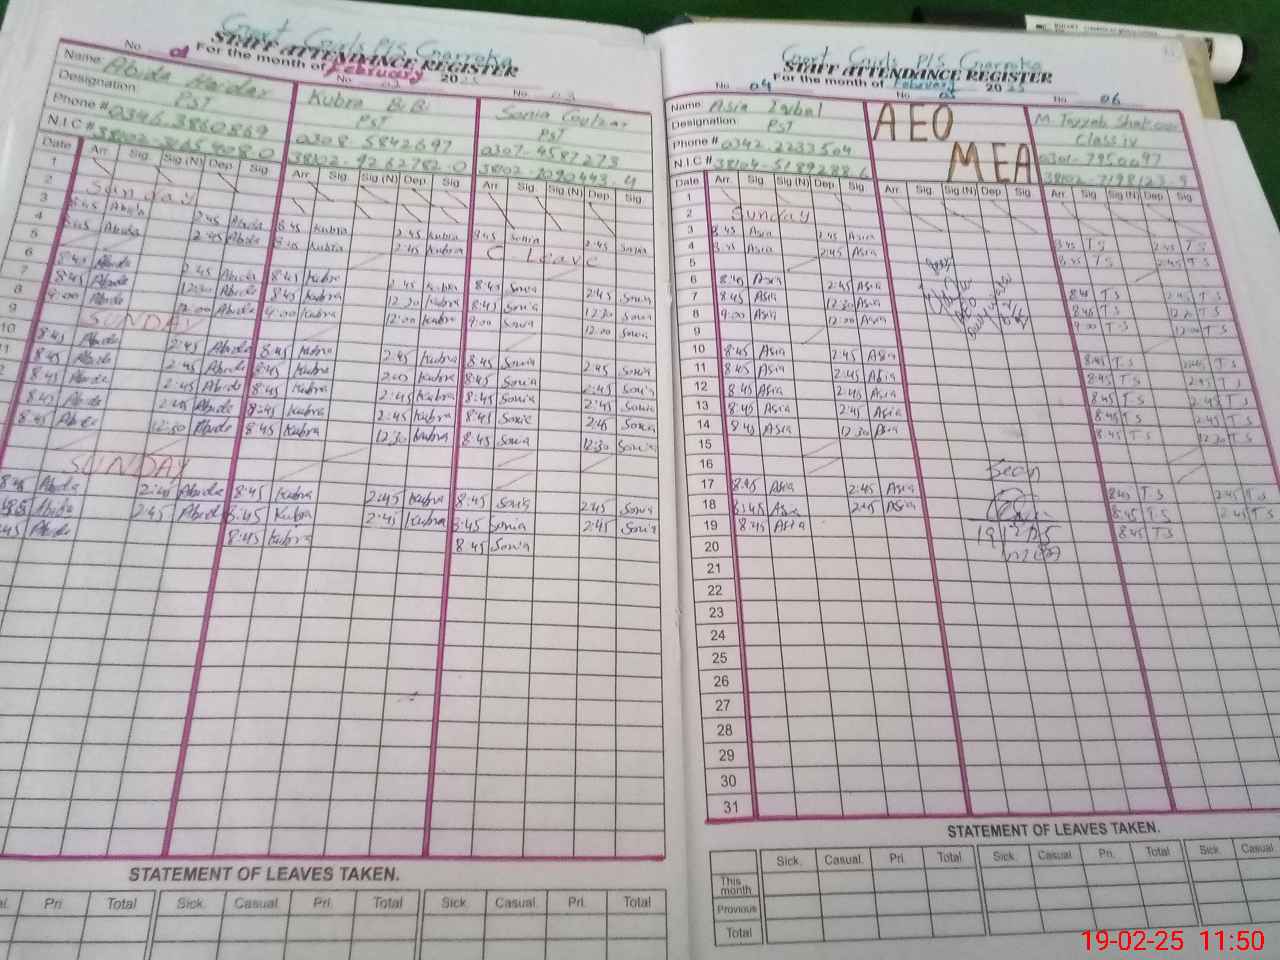 Govt Girls P/S
STAFF ATTENDANCE REGISTER
No. 01 For the month of February 2025
No 02
No 03
Name Abida Haidar
Kubra BiBi
Sonia Goulzar
Designation PST
PST
PST
Phone # 0346.3860869
0308.5842697
0307-4587273
N.I.C #
38102-9262782-0
38102-2090443-4
Date Arr. Sig. Sig (N) Dep. Sig.
Arr. Sig. Sig (N) Dep. Sig.
Arr. Sig. Sig (N) Dep. Sig.
1
2 Sunday
3 8:45 Abida 2:45 Abida 8:45 Kubra 2:45 Kubra 8:45 Sonia 2:45 Sonia
4 8:45 Abida 2:45 Abida 8:45 Kubra 2:45 Kubra C Leave
5
6 8:45 Abida 2:45 Abida 8:45 Kubra 2:45 Kubra 8:45 Sonia 2:45 Sonia
7 8:45 Abida 12:30 Abida 8:45 Kubra 12:30 Kubra 8:45 Sonia 12:30 Sonia
8 9:00 Abida 12:00 Abida 9:00 Kubra 12:00 Kubra 9:00 Sonia 12:00 Sonia
9 SUNDAY
10 8:45 Abida 2:45 Abida 8:45 Kubra 2:45 Kubra 8:45 Sonia 2:45 Sonia
8:45 Abida 2:45 Abida 8:45 Kubra Kubra 8:45 Sonia 2:45 Sonia
8:45 Abida 2:45 Abida 8:45 Kubra 2:45 Kubra 8:45 Sonia 2:45 Sonia
8:45 Abida 2:45 Abida 8:45 Kubra 2:45 Kubra 8:45 Sonia 2:45 Sonia
8:45 Abida 12:30 Abida 8:45 Kubra 12:30 Kubra 8:45 Sonia 12:30 Sonia
SUNDAY
8:45 Abida 2:45 Abida 8:45 Kubra 2:45 Kubra 8:45 Sonia 2:45 Sonia
Abida 2:45 Abida 8:45 Kubra 2:45 Kubra 8:45 Sonia 2:45 Sonia
:45 Abida 8:45 Kubra 8:45 Sonia
STATEMENT OF LEAVES TAKEN.
Pri. Total Sick. Casual. Pri. Total Sick. Casual. Pri. Total
Govt Girls P/S
STAFF ATTENDANCE REGISTER
No 04 For the month of February 2025
No 05
No 06
Name Asia Iqbal
AEO
MEA
M. Tayyab Shakoor
Designation PST
Class iv
Phone # 0342.2233504
N.I.C # 38104-5189288-6
38102-7198123-9
Date Arr. Sig. Sig (N) Dep. Sig.
Arr. Sig. Sig (N) Dep. Sig.
Arr. Sig. Sig (N) Dep. Sig.
1
2 Sunday
3 8:45 Asia 2:45 Asia 8:45 T S 2:45 T S
4 8:45 Asia 2:45 Asia 8:45 T S 2:45 T S
5
6 8:45 Asia 2:45 Asia 8:45 T S 2:45 T S
7 8:45 Asia 12:30 Asia 8:45 T S T S
8 9:00 Asia 12:00 Asia 9:00 T S 12:00 T S
9
10 8:45 Asia 2:45 Asia 8:45 T S 2:45 T S
11 8:45 Asia 2:45 Asia 8:45 T S 2:45 T S
12 8:45 Asia 2:45 Asia 8:45 T S 2:45 T S
13 8:45 Asia 2:45 Asia 8:45 T S 2:45 T S
14 8:45 Asia 12:30 Asia 8:45 T S 12:30 T S
15
16 Seen
17 8:45 Asia 2:45 Asia 8:45 T S 2:45 T S
18 8:45 Asia 2:45 Asia 8:45 T S 2:45 T S
19 8:45 Asia 8:45 T S
20
21
22
23
24
25
26
27
28
29
30
31
STATEMENT OF LEAVES TAKEN.
Sick. Casual. Pri. Total Sick. Casual. Pri. Total Sick. Casual.
This month
Previous
Total
19-02-25 11:50